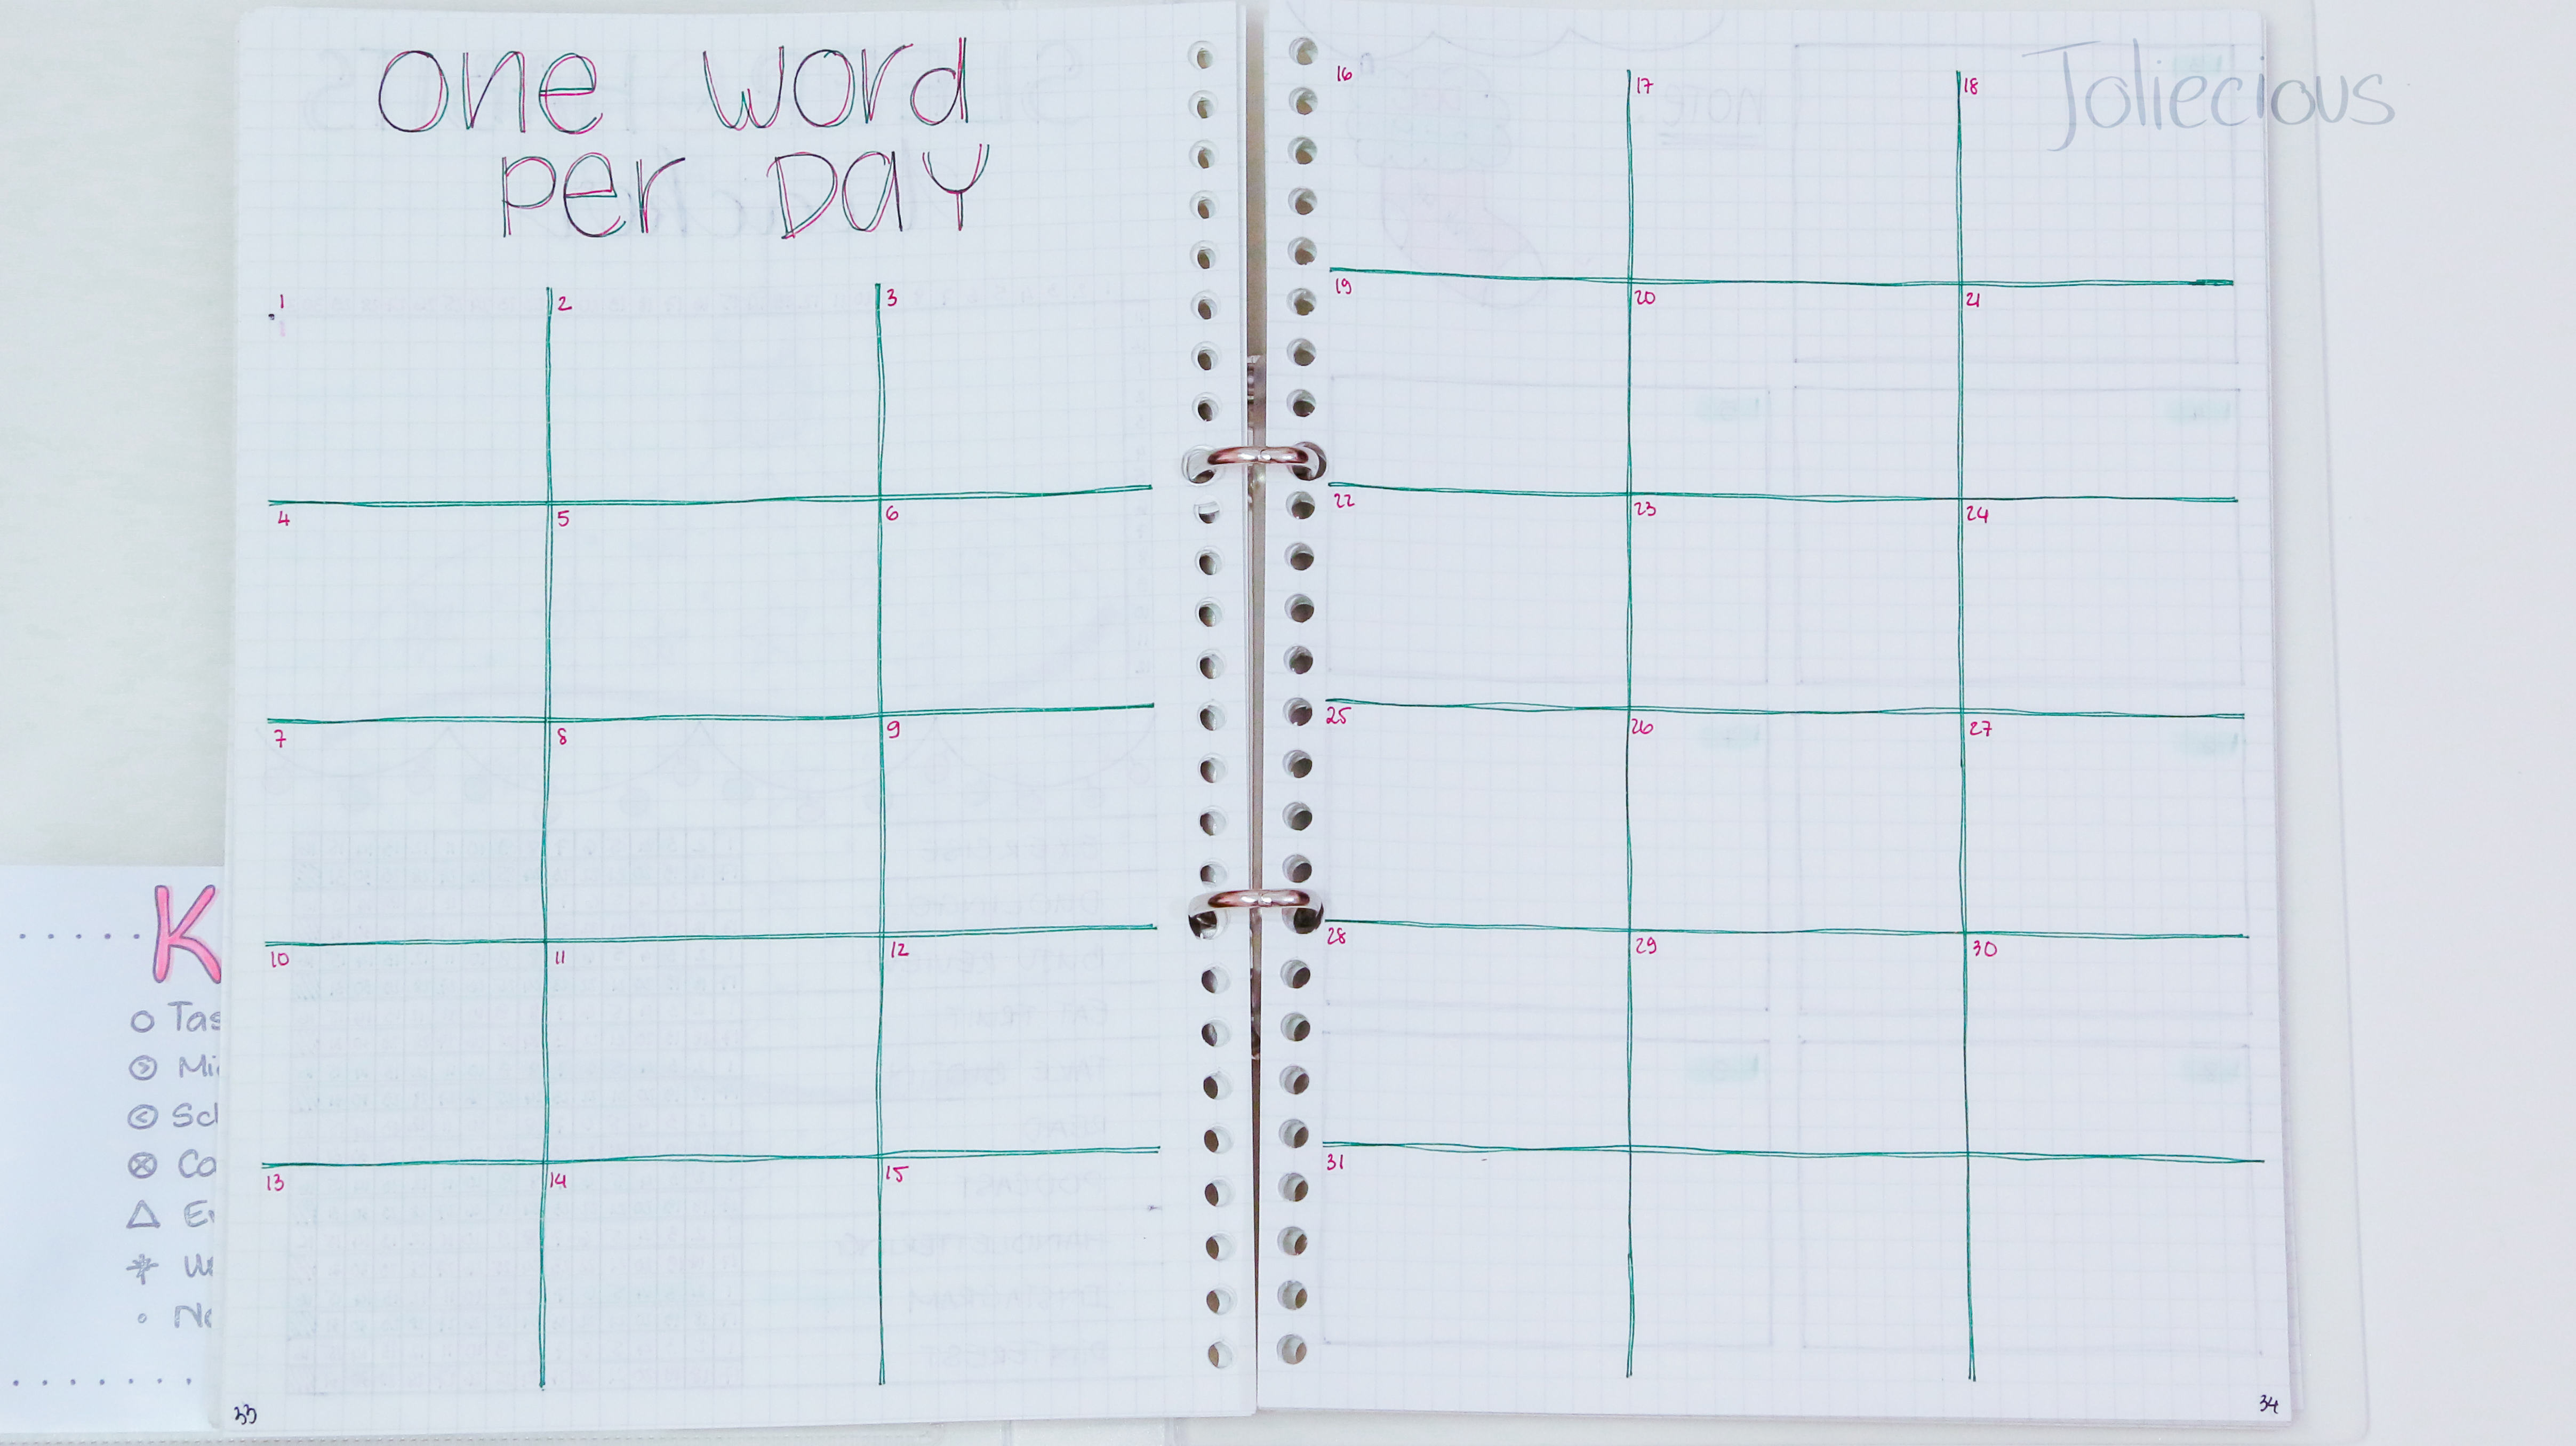 one word
per DAY
1 2 3
4 5 6
7 8 9
10 11 12
13 14 15
33
16 17 18
Joliecious
19 20 21
22 23 24
25 26 27
28 29 30
31
34
K
Tas
Mi
Scl
Co
NOTE:
EXERCISE
EAT FRUIT
READ
PODCAST
HANDLETTERING
INSTAGRAM
PINTEREST